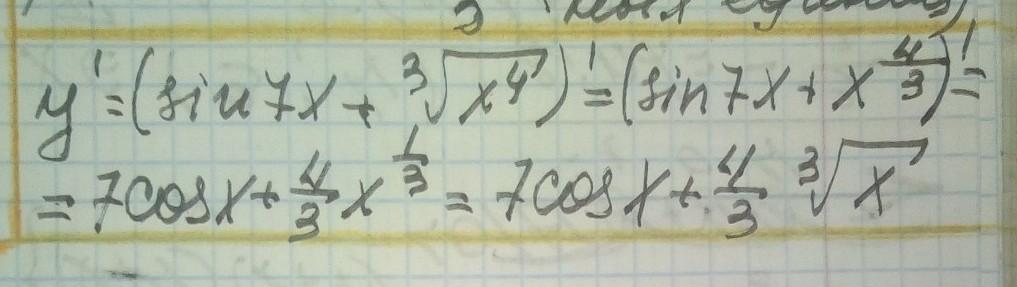 y' = (sin 7x + ∛(x⁴))' = (sin 7x + x^(4/3))' =
= 7cosx + 4/3 x^(1/3) = 7cosx + 4/3 ∛x